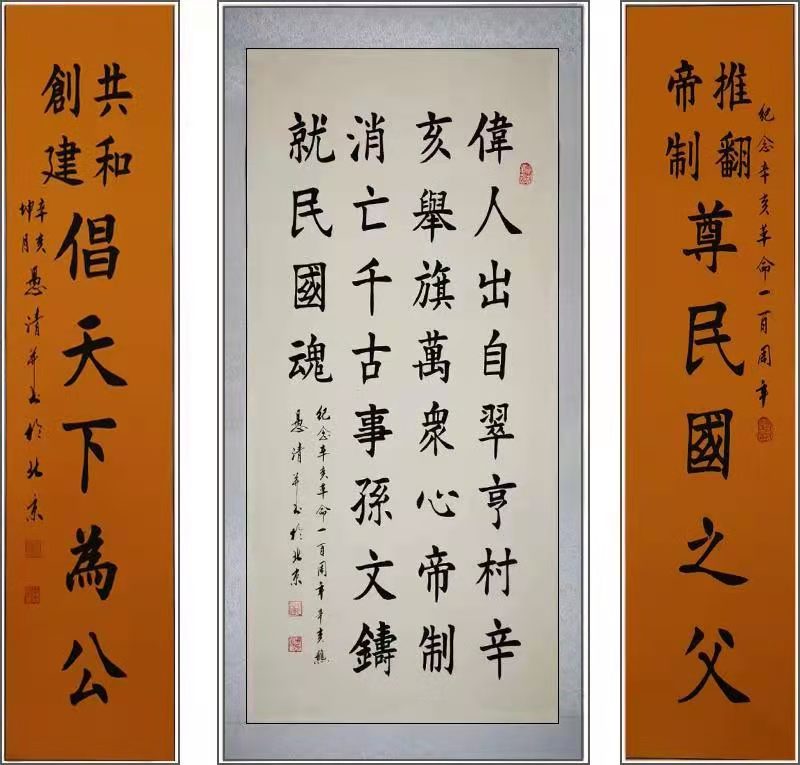 紀念辛亥革命一百周年
推翻
帝制
尊民國之父
偉人出自翠亨村辛
亥舉旗萬衆心帝制
消亡千古事孫文鑄
就民國魂
紀念辛亥革命一百周年辛亥
愚清并书於北京
共和
創建
倡天下為公
辛亥
坤月
愚清并书於北京